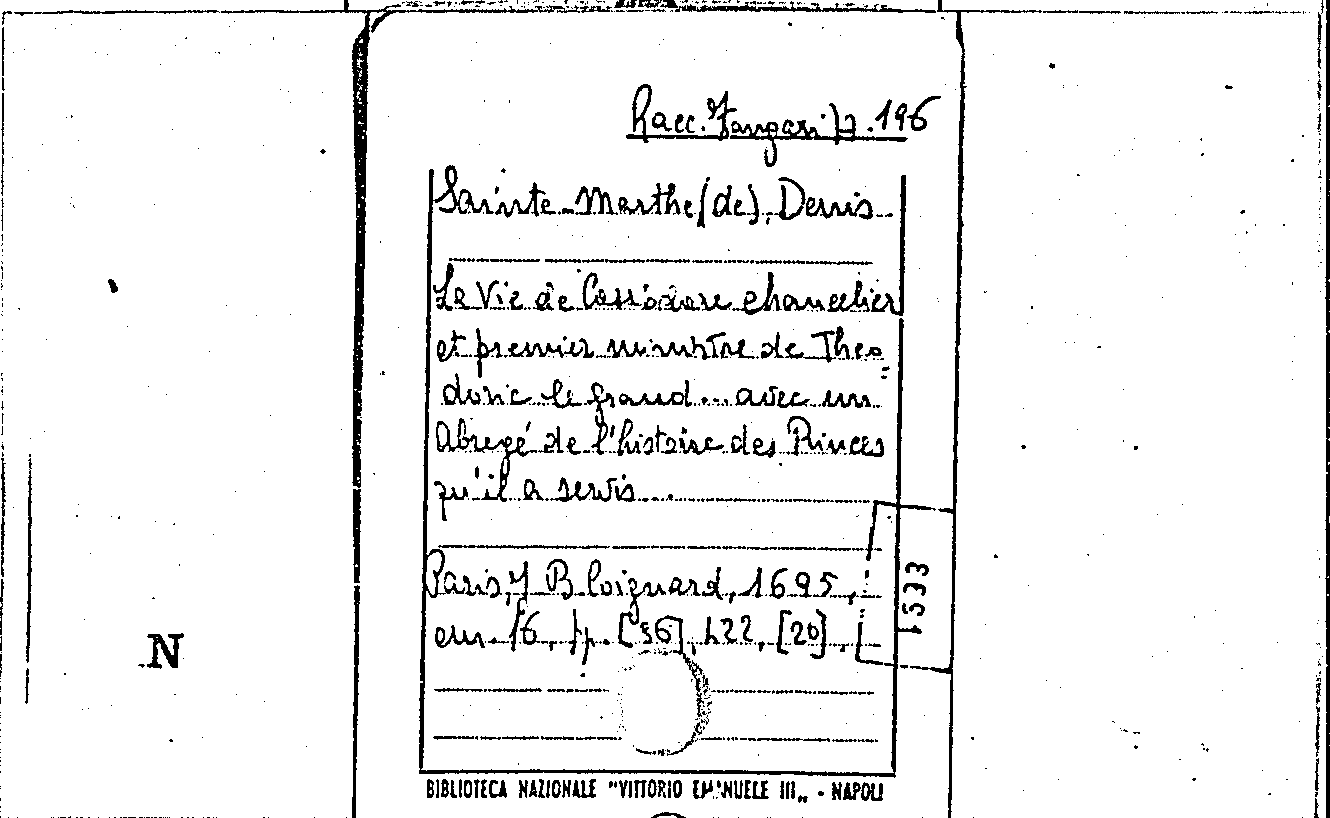 Racc. Zangari B. 196
Sainte-Marthe (de), Denis
La Vie de Cassiodore chancelier
et premier ministre de Theo=
doric le grand... avec un
Abregé de l'histoire des Princes
qu'il a servis...
Paris, J B Coignard, 1695,
cm. 16, pp. [36], 422, [20].
1533
N
BIBLIOTECA NAZIONALE "VITTORIO EMANUELE III„ - NAPOLI